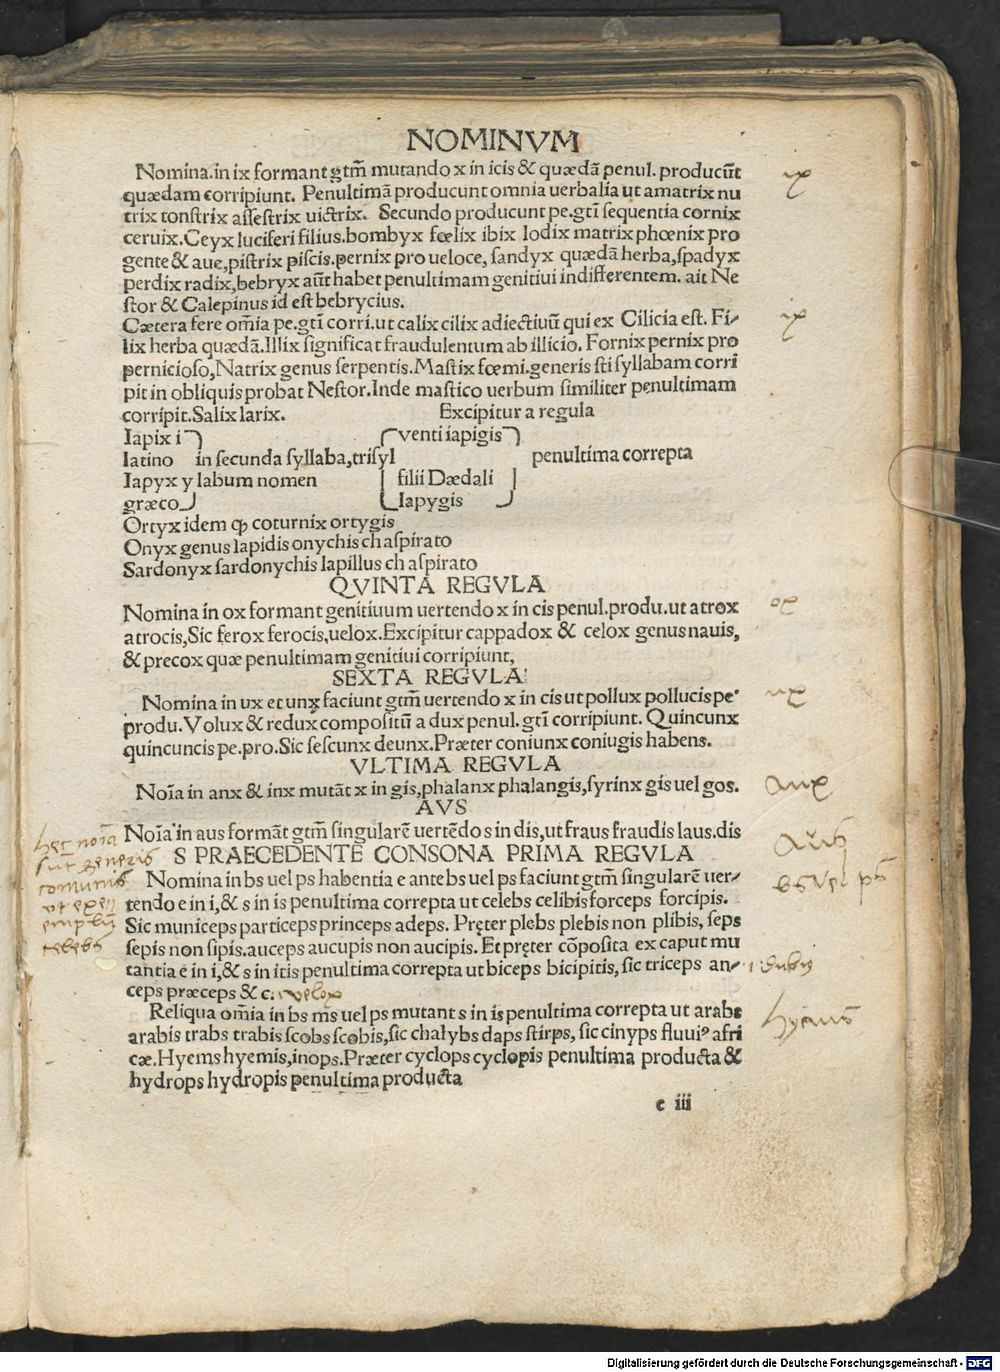 NOMINVM
Nomina.in ix formant gtm̃ mutando x in icis & quædã penul. producũt
quædam corripiunt. Penultimã producunt omnia uerbalia ut amatrix nu
trix tonstrix assestrix uictrix. Secundo producunt pe.gtĩ sequentia cornix
ceruix.Ceyx luciferi filius.bombyx fœlix ibix lodix matrix phœnix pro
gente & aue,pistrix piscis.pernix pro ueloce, sandyx quædã herba,spadyx
perdix radix,bebryx aũt habet penultimam genitiui indifferentem. ait Ne
stor & Calepinus id est bebrycius.
Cætera fere om̃ia pe.gtĩ corri.ut calix cilix adiectiuũ qui ex Cilicia est. Fi-
lix herba quædã.Illix significat fraudulentum ab illicio. Fornix pernix pro
pernicioso,Natrix genus serpentis.Mastix fœmi.generis sti syllabam corri
pit in obliquis probat Nestor.Inde mastico uerbum similiter penultimam
corripit.Salix larix. Excipitur a regula
Iapix i venti iapigis
latino in secunda syllaba,trisyl penultima correpta
Iapyx y labum nomen filii Dædali
græco Iapygis
Ortyx idem ꝙ coturnix ortygis
Onyx genus lapidis onychis ch aspirato
Sardonyx sardonychis lapillus ch aspirato
QVINTA REGVLA
Nomina in ox formant genitiuum uertendo x in cis penul.produ.ut atrox
atrocis,Sic ferox ferocis,uelox.Excipitur cappadox & celox genus nauis,
& precox quæ penultimam genitiui corripiunt,
SEXTA REGVLA
Nomina in ux et unx faciunt gtm̃ uertendo x in cis ut pollux pollucis pe
produ.Volux & redux compositũ a dux penul. gtĩ corripiunt. Quincunx
quincuncis pe.pro.Sic sescunx deunx.Præter coniunx coniugis habens.
VLTIMA REGVLA
Noĩa in anx & inx mutãt x in gis,phalanx phalangis,syrinx gis uel gos.
AVS
Noĩa in aus formãt gtm̃ singularẽ uertẽdo s in dis,ut fraus fraudis laus.dis
S PRAECEDENTE CONSONA PRIMA REGVLA
Nomina in bs uel ps habentia e ante bs uel ps faciunt gtm̃ singularẽ uer-
tendo e in i,& s in is penultima correpta ut celebs celibis forceps forcipis.
Sic municeps particeps princeps adeps. Pręter plebs plebis non plibis, seps
sepis non sipis.auceps aucupis non aucipis. Et pręter cõposita ex caput mu
tantia e in i,& s in itis penultima correpta ut biceps bicipitis, sic triceps an-
ceps præceps & c. velox
Reliqua om̃ia in bs ms uel ps mutant s in is penultima correpta ut arabs
arabis trabs trabis scobs scobis,sic chalybs daps stirps, sic cinyps fluuiꝰ afri
cæ.Hyems hyemis,inops.Præter cyclops cyclopis penultima producta &
hydrops hydropis penultima producta
e iii
ix
ix
ox
ux
anx
aus
bs vel ps
hec noĩa
sũt generis
comunis
celebs